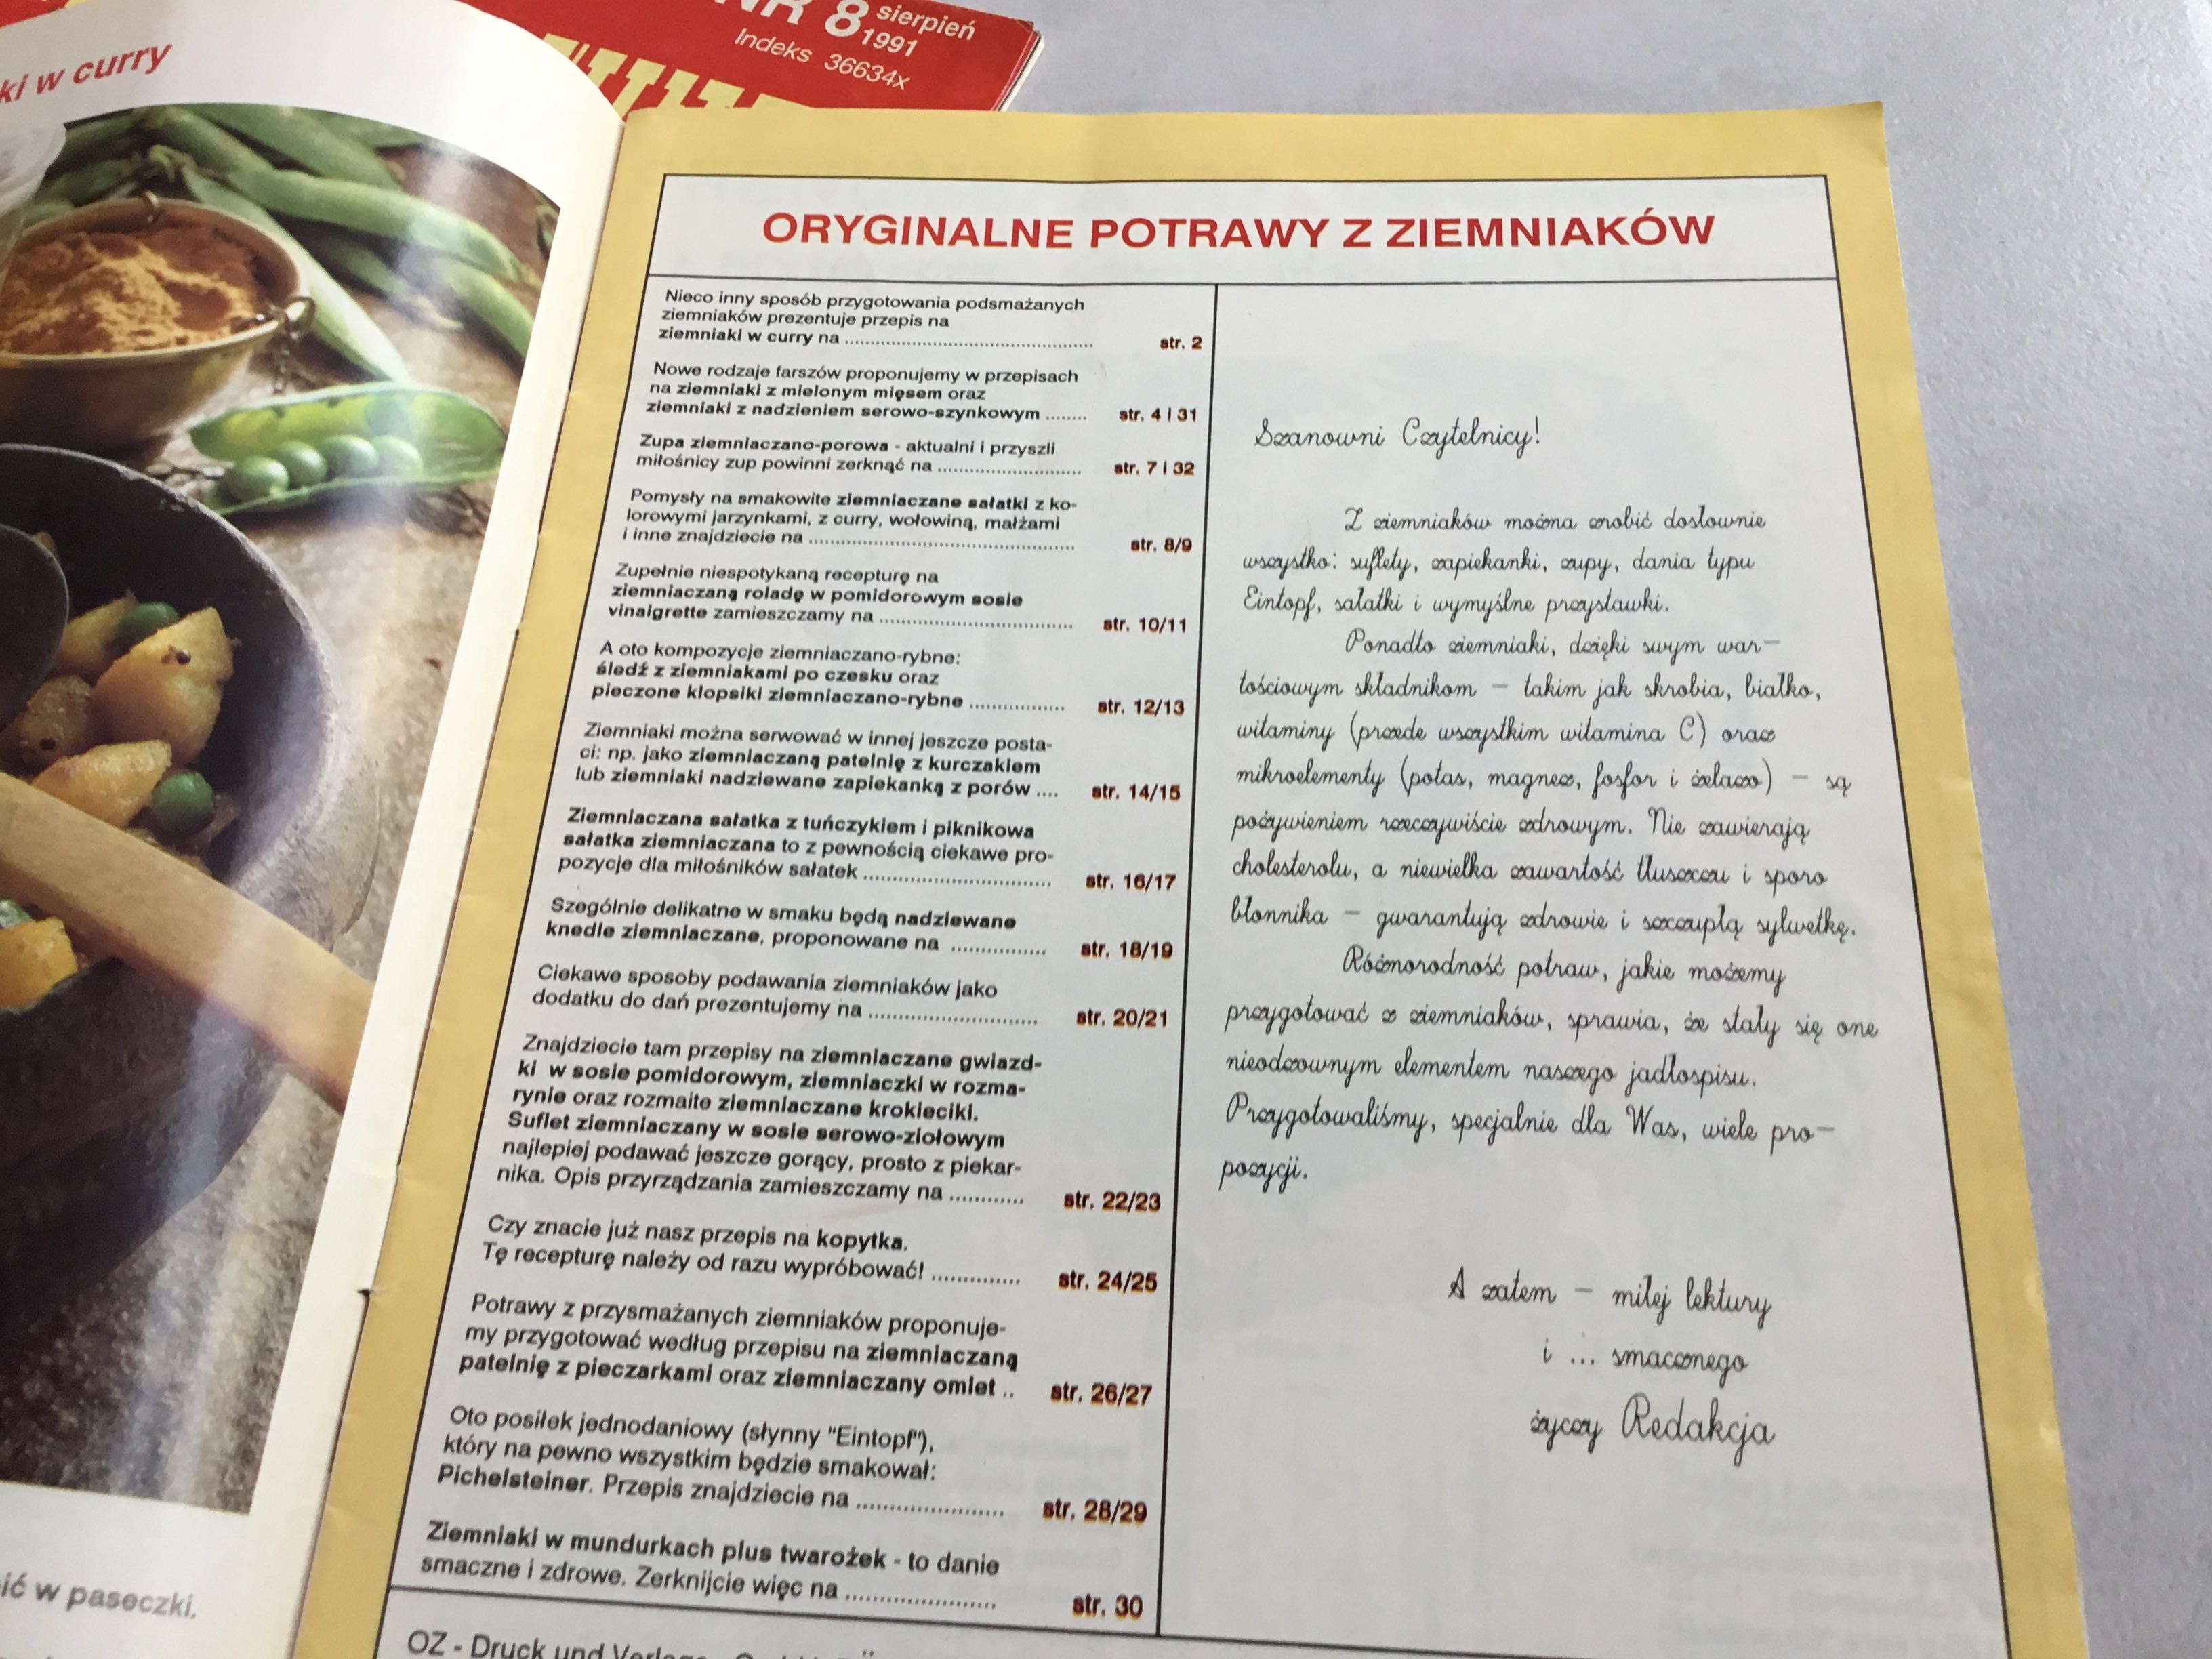 ki w curry
NR 8 sierpień
1991
Indeks 36634x
ić w paseczki.
ORYGINALNE POTRAWY Z ZIEMNIAKÓW
Nieco inny sposób przygotowania podsmażanych
ziemniaków prezentuje przepis na
ziemniaki w curry na ........ str. 2
Nowe rodzaje farszów proponujemy w przepisach
na ziemniaki z mielonym mięsem oraz
ziemniaki z nadzieniem serowo-szynkowym ........ str. 4 i 31
Zupa ziemniaczano-porowa - aktualni i przyszli
miłośnicy zup powinni zerknąć na ........ str. 7 i 32
Pomysły na smakowite ziemniaczane sałatki z ko-
lorowymi jarzynkami, z curry, wołowiną, małżami
i inne znajdziecie na ........ str. 8/9
Zupełnie niespotykaną recepturę na
ziemniaczaną roladę w pomidorowym sosie
vinaigrette zamieszczamy na ........ str. 10/11
A oto kompozycje ziemniaczano-rybne:
śledź z ziemniakami po czesku oraz
pieczone klopsiki ziemniaczano-rybne ........ str. 12/13
Ziemniaki można serwować w innej jeszcze posta-
ci: np. jako ziemniaczaną patelnię z kurczakiem
lub ziemniaki nadziewane zapiekanką z porów .... str. 14/15
Ziemniaczana sałatka z tuńczykiem i piknikowa
sałatka ziemniaczana to z pewnością ciekawe pro-
pozycje dla miłośników sałatek ........ str. 16/17
Szególnie delikatne w smaku będą nadziewane
knedle ziemniaczane, proponowane na ........ str. 18/19
Ciekawe sposoby podawania ziemniaków jako
dodatku do dań prezentujemy na ........ str. 20/21
Znajdziecie tam przepisy na ziemniaczane gwiazd-
ki w sosie pomidorowym, ziemniaczki w rozma-
rynie oraz rozmaite ziemniaczane krokieciki.
Suflet ziemniaczany w sosie serowo-ziołowym
najlepiej podawać jeszcze gorący, prosto z piekar-
nika. Opis przyrządzania zamieszczamy na ........ str. 22/23
Czy znacie już nasz przepis na kopytka.
Tę recepturę należy od razu wypróbować! ........ str. 24/25
Potrawy z przysmażanych ziemniaków proponuje-
my przygotować według przepisu na ziemniaczaną
patelnię z pieczarkami oraz ziemniaczany omlet .. str. 26/27
Oto posiłek jednodaniowy (słynny "Eintopf"),
który na pewno wszystkim będzie smakował:
Pichelsteiner. Przepis znajdziecie na ........ str. 28/29
Ziemniaki w mundurkach plus twarożek - to danie
smaczne i zdrowe. Zerknijcie więc na ........ str. 30
Szanowni Czytelnicy!
Z ziemniaków można zrobić dosłownie
wszystko: suflety, zapiekanki, zupy, dania typu
Eintopf, sałatki i wymyślne przystawki.
Ponadto ziemniaki, dzięki swym war-
tościowym składnikom – takim jak skrobia, białko,
witaminy (przede wszystkim witamina C) oraz
mikroelementy (potas, magnez, fosfor i żelazo) – są
pożywieniem rzeczywiście zdrowym. Nie zawierają
cholesterolu, a niewielka zawartość tłuszczu i sporo
błonnika – gwarantują zdrowie i szczupłą sylwetkę.
Różnorodność potraw, jakie możemy
przygotować z ziemniaków, sprawia, że stały się one
nieodzownym elementem naszego jadłospisu.
Przygotowaliśmy, specjalnie dla Was, wiele pro-
pozycji.
A zatem – miłej lektury
i ... smacznego
życzy Redakcja
OZ - Druck und